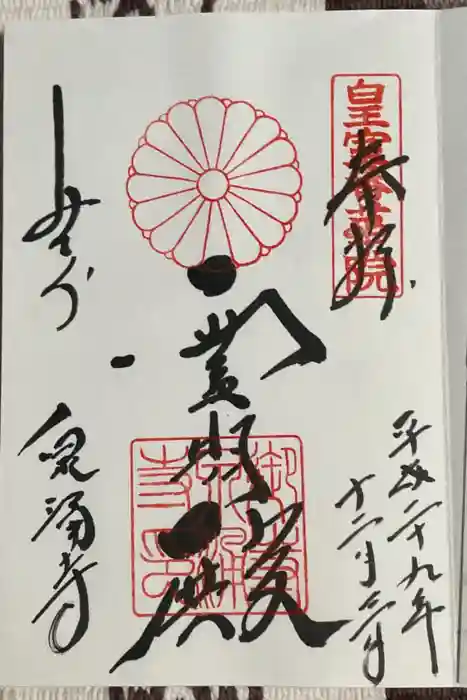 皇室香華院
奉拝
平成二十九年
十二月
霊明殿
御寺
泉涌
寺印
みてら
泉涌寺